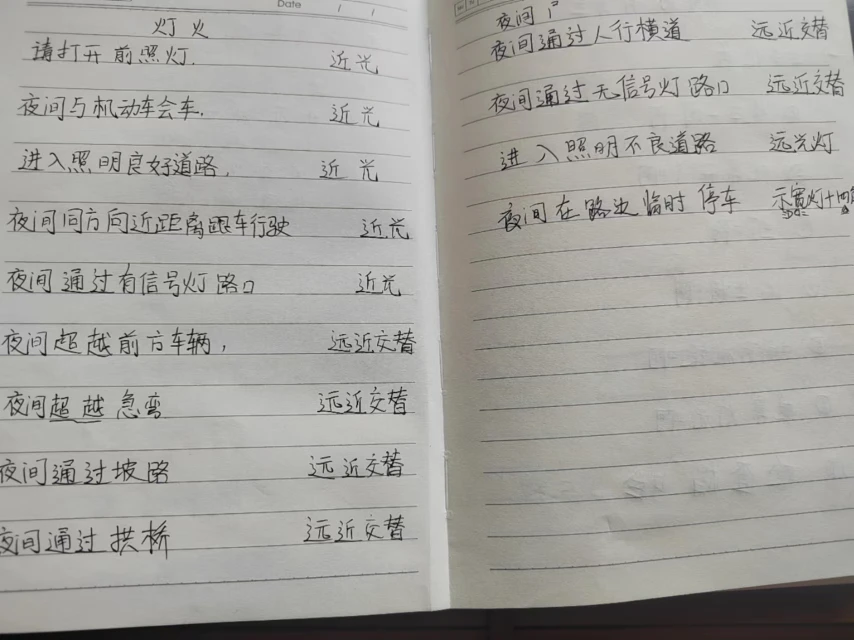 Date / /
灯火
请打开前照灯. 近光
夜间与机动车会车. 近光
进入照明良好道路, 近光
夜间同方向近距离跟车行驶 近光
夜间通过有信号灯路口 近光
夜间超越前方车辆, 远近交替
夜间超越急弯 远近交替
夜间通过坡路 远近交替
夜间通过拱桥 远近交替
夜间
夜间通过人行横道 远近交替
夜间通过无信号灯路口 远近交替
进入照明不良道路 远光灯
夜间在路边临时停车 示宽灯+